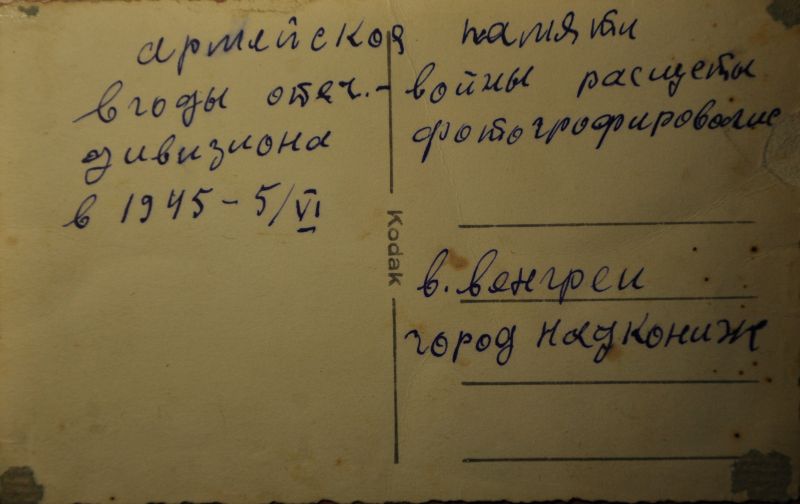 армейской памяти
в годы отеч.- войны расщеты
дивизиона фотографировалис
в 1945-5/VI
Kodak
в. венгреи
город надкониж